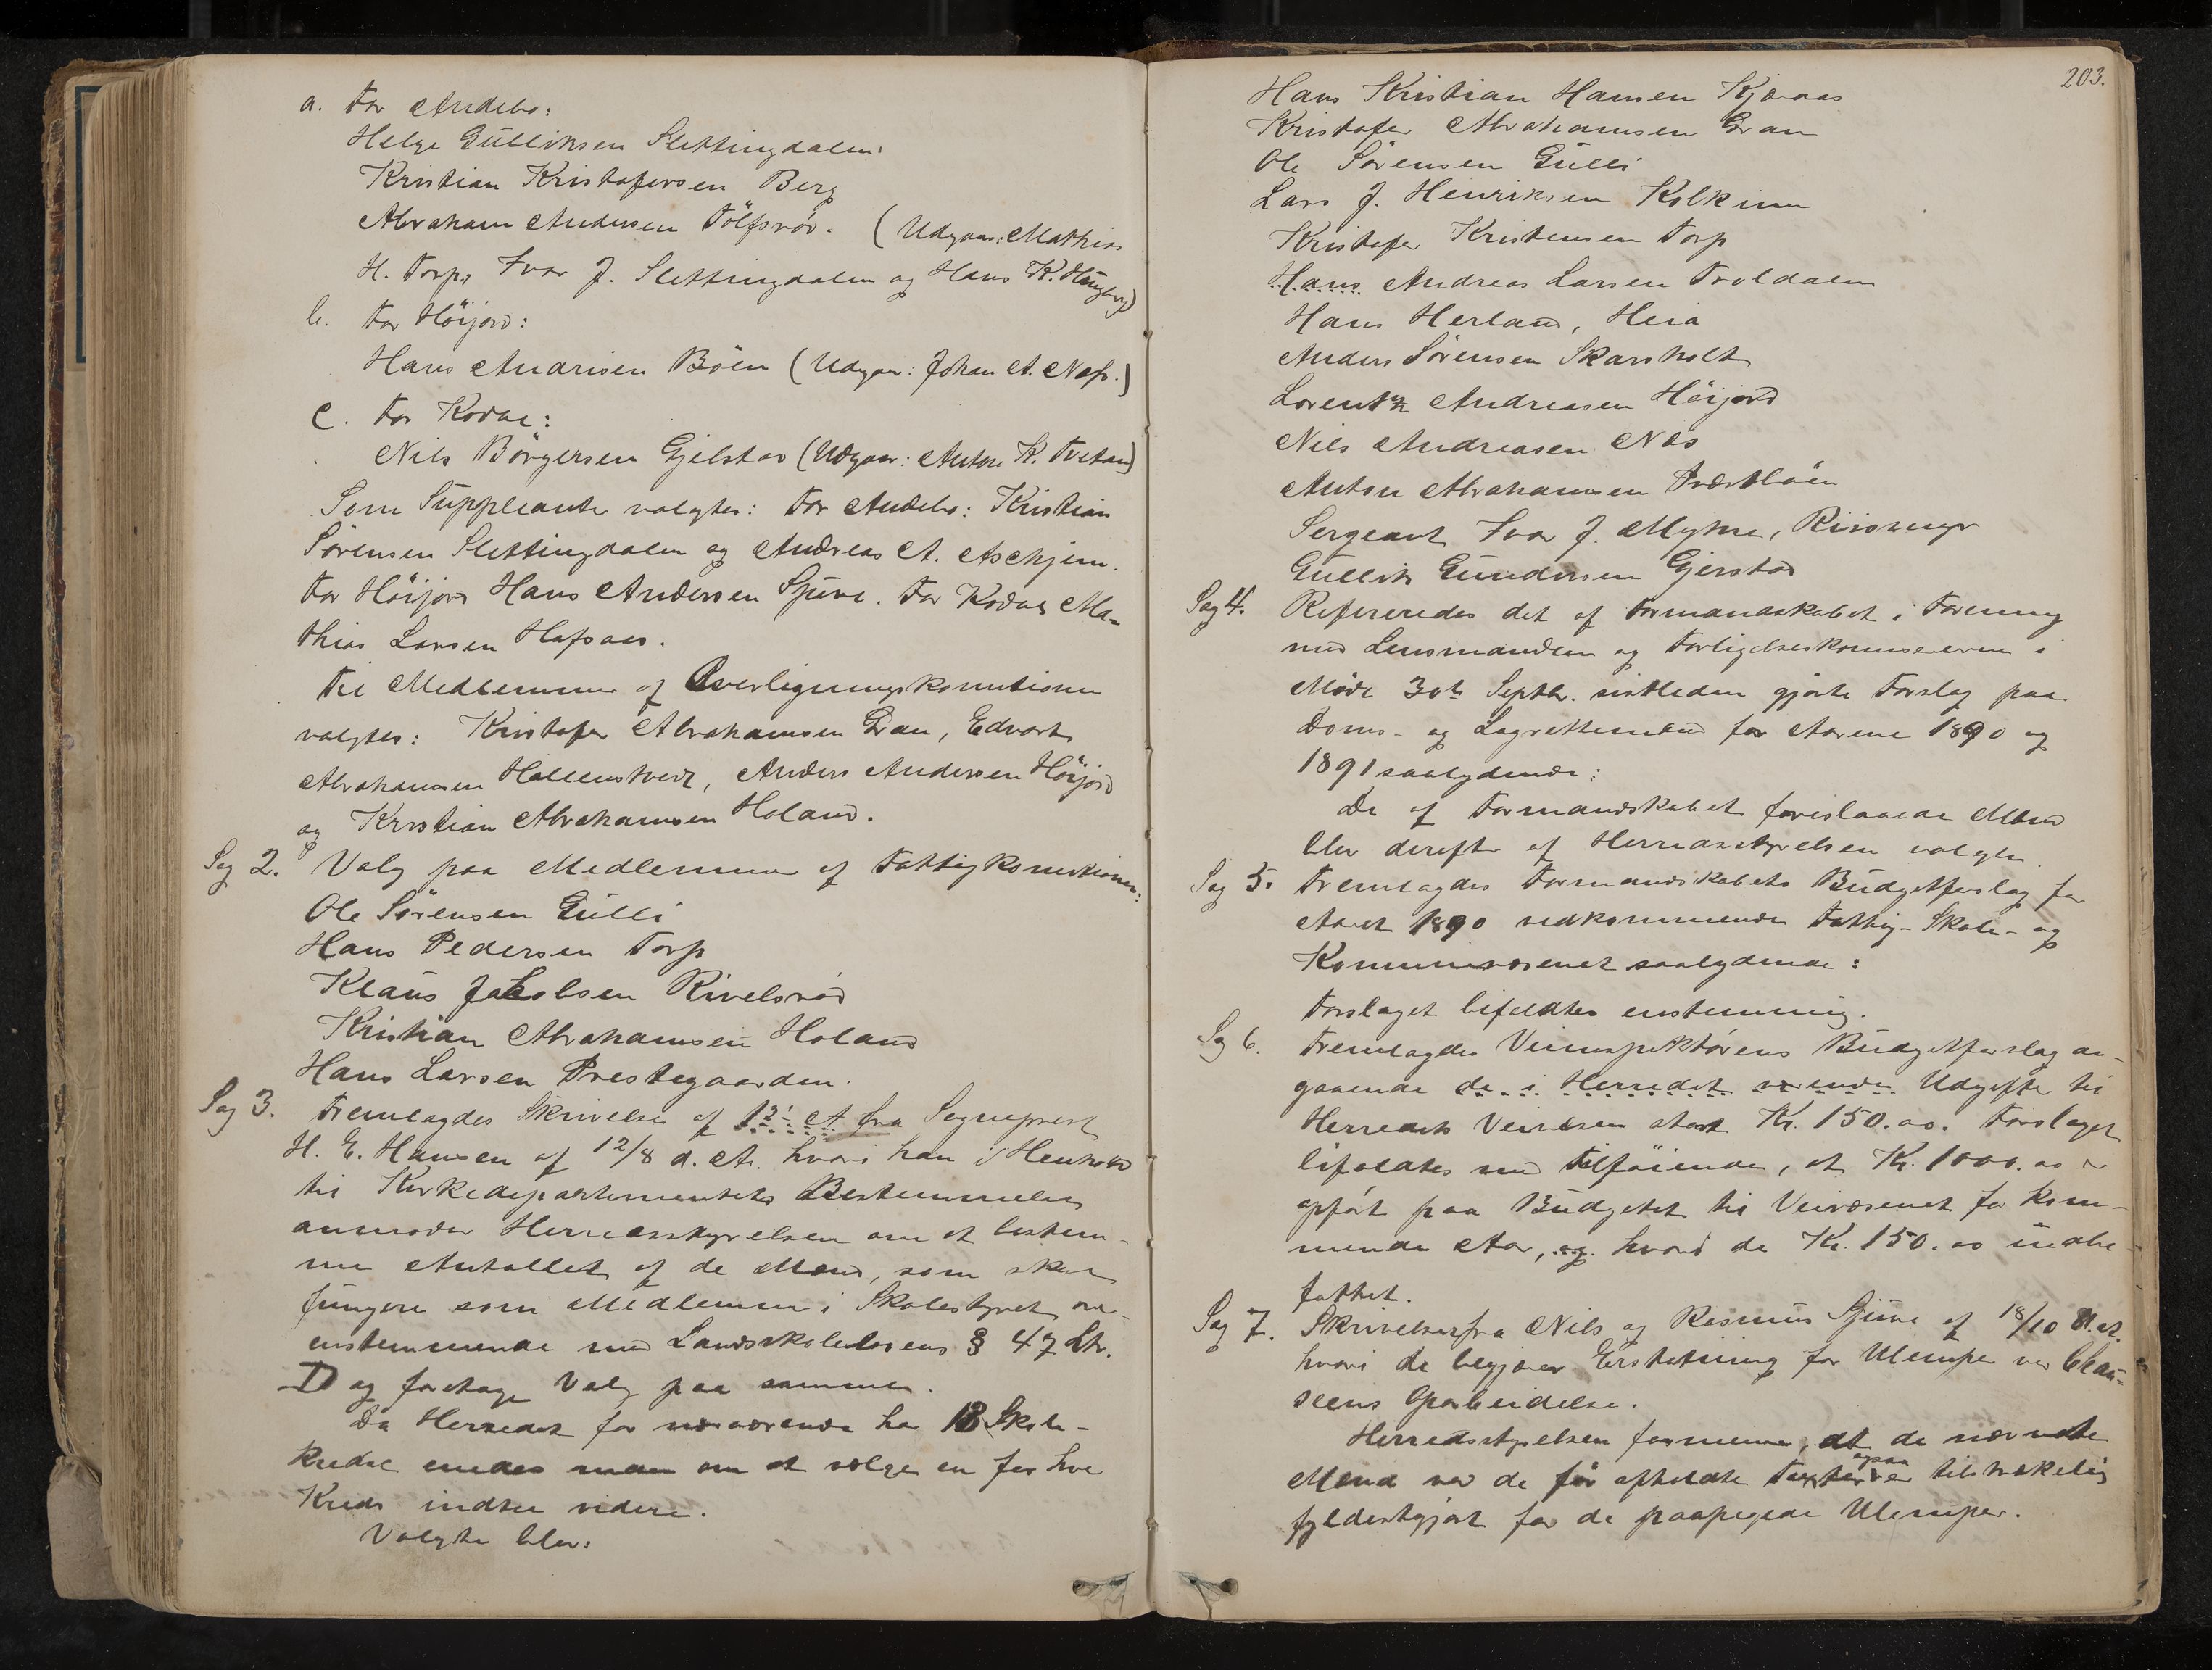 a. For Andebo:
Helge Gulliksen Slettingdalen.
Kristian Kristofersen Berg
Abraham Andersen Tolfsrød. (Udgaar: Mathias
H. Torp, Ivar J. Slettingdalen og Hans K. Haugberg)
b. For Höijord:
Hans Andrisen Böen (Udgaar: Johan A. Næs.)
c. For Kodal:
Nils Börgersen Gjelstad (Udgaar: Anton K. Tvetan)
Som Suppleanter valgtes: For Andebo: Kristian
Sörensen Slettingdalen og Andreas A. Askjem.
For Höijord Hans Andersen Gjuve. For Kodal Ma-
thias Larsen Hafsaas.
Til Medlemmer af Overligningskomitionen
valgtes: Kristofer Abrahamsen Gran, Edvart
Abrahamsen Hallenstvedt, Anders Andersen Höijord
og Kristian Abrahamsen Holand.
Sag 2. Valg paa Medlemmer af Fattigkomitionen:
Ole Sörensen Gulli
Hans Pedersen Torp
Klaus Jakobsen Rivelsröd
Kristian Abrahamsen Holand
Hans Larsen Prestegaarden.
Sag 3. Fremlagdes Skrivelse af 12' A fra Sogneprest
H. E. Hansen af 12/8 d. A. hvori han i Henhold
til Kirkedepartementets Bestemmelser
anmoder Herredsstyrelsen om at bestem-
me Antallet af de Mænd, som skal
fungere som Medlemmer i Skolestyret over-
enstemmende med Landsskolelovens § 47 Ltr.
D og foretage Valg paa samme.
Da Herredet for nærværende har 13 Skole-
kredse enedes man om at vælge en for hver
Kreds indtil videre.
Valgte blev:
203.
Hans Kristian Hansen Kjæraas
Kristofer Abrahamsen Gran
Ole Sörensen Gulli
Lars J. Henriksen Kolkinn
Kristofer Kristensen Torp
Hans Andreas Larsen Troldalen
Hans Herland, Heia
Anders Sörensen Skarsholt
Lorentz Andreasen Höijord
Nils Andreasen Næs
Anton Abrahamsen Prærtlöen
Sergeant Ivar J. Myhre, Riismyr
Gullik Gundersen Gjerstad
Sag 4. Refereredes det af Formandskabet i Forening
med Lensmanden og Forligelseskommisærerne i
Møde 30te Septbr. sistleden gjorte Forslag paa
Doms- og Lagrettemænd for Aarene 1890 og
1891 saalydende:
De af Formandskabet foreslaaede Mænd
blev derefter af Herredsstyrelsen valgte.
Sag 5. Fremlagdes Formandskabets Budgetforslag for
Aaret 1890 vedkommende Fattig- Skole- og
Kommunevæsenet saalydende:
Forslaget bifaldtes enstemmig.
Sag 6. Fremlagdes Veiinspektörens Budgetforslag an-
gaaende de i Herredet værende Udgifter til
Herredets Veivæsen stort Kr. 150.00. Forslaget
bifaldtes med tilföiende, at Kr. 1000.00 er
opfört paa Budgetet til Veivæsenet for kom-
mende Aar, og hvori de Kr. 150.00 indbe-
fattet.
Sag 7. Skrivelser fra Nils og Rasmus Gjuve af 18/10 d. A.
hvori de begjærer Erstatning for Ulemper ved Chau-
seens Oparbeidelse.
Herredsstyrelsen formener, at de nævnte
Mænd ved de för afholdte Taxter ogsaa er tilstrækelig
fyldestgjort for de paapegede Ulemper.